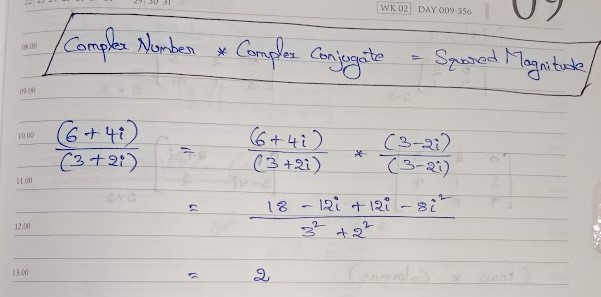 29 30 31
WK 02 DAY 009-356
09
08.00
Complex Number * Complex Conjugate = Squared Magnitude
09.00
10.00
(6+4i)/(3+2i) = (6+4i)/(3+2i) * (3-2i)/(3-2i)
11.00
= (18 - 12i + 12i - 8i²)/(3² + 2²)
12.00
13.00
= 2